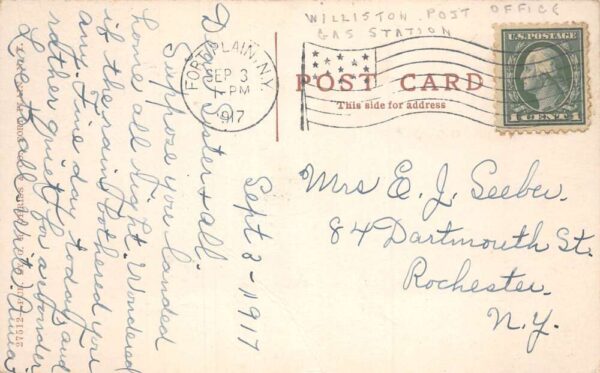 WILLISTON POST OFFICE
GAS STATION
FORT PLAIN, N.Y.
SEP 3
PM
1917
POST CARD
This side for address
U.S. POSTAGE
1 CENT 1
Sept 3 - 1917
Dear Sister & all.
Suppose you landed
home all right. Wondered
if the rain bothered you
any. Fine day today and
rather quiet for a wonder
Love to all. write. Anna
Mrs E. J. Seeber.
84 Dartmouth St.
Rochester.
N.Y.